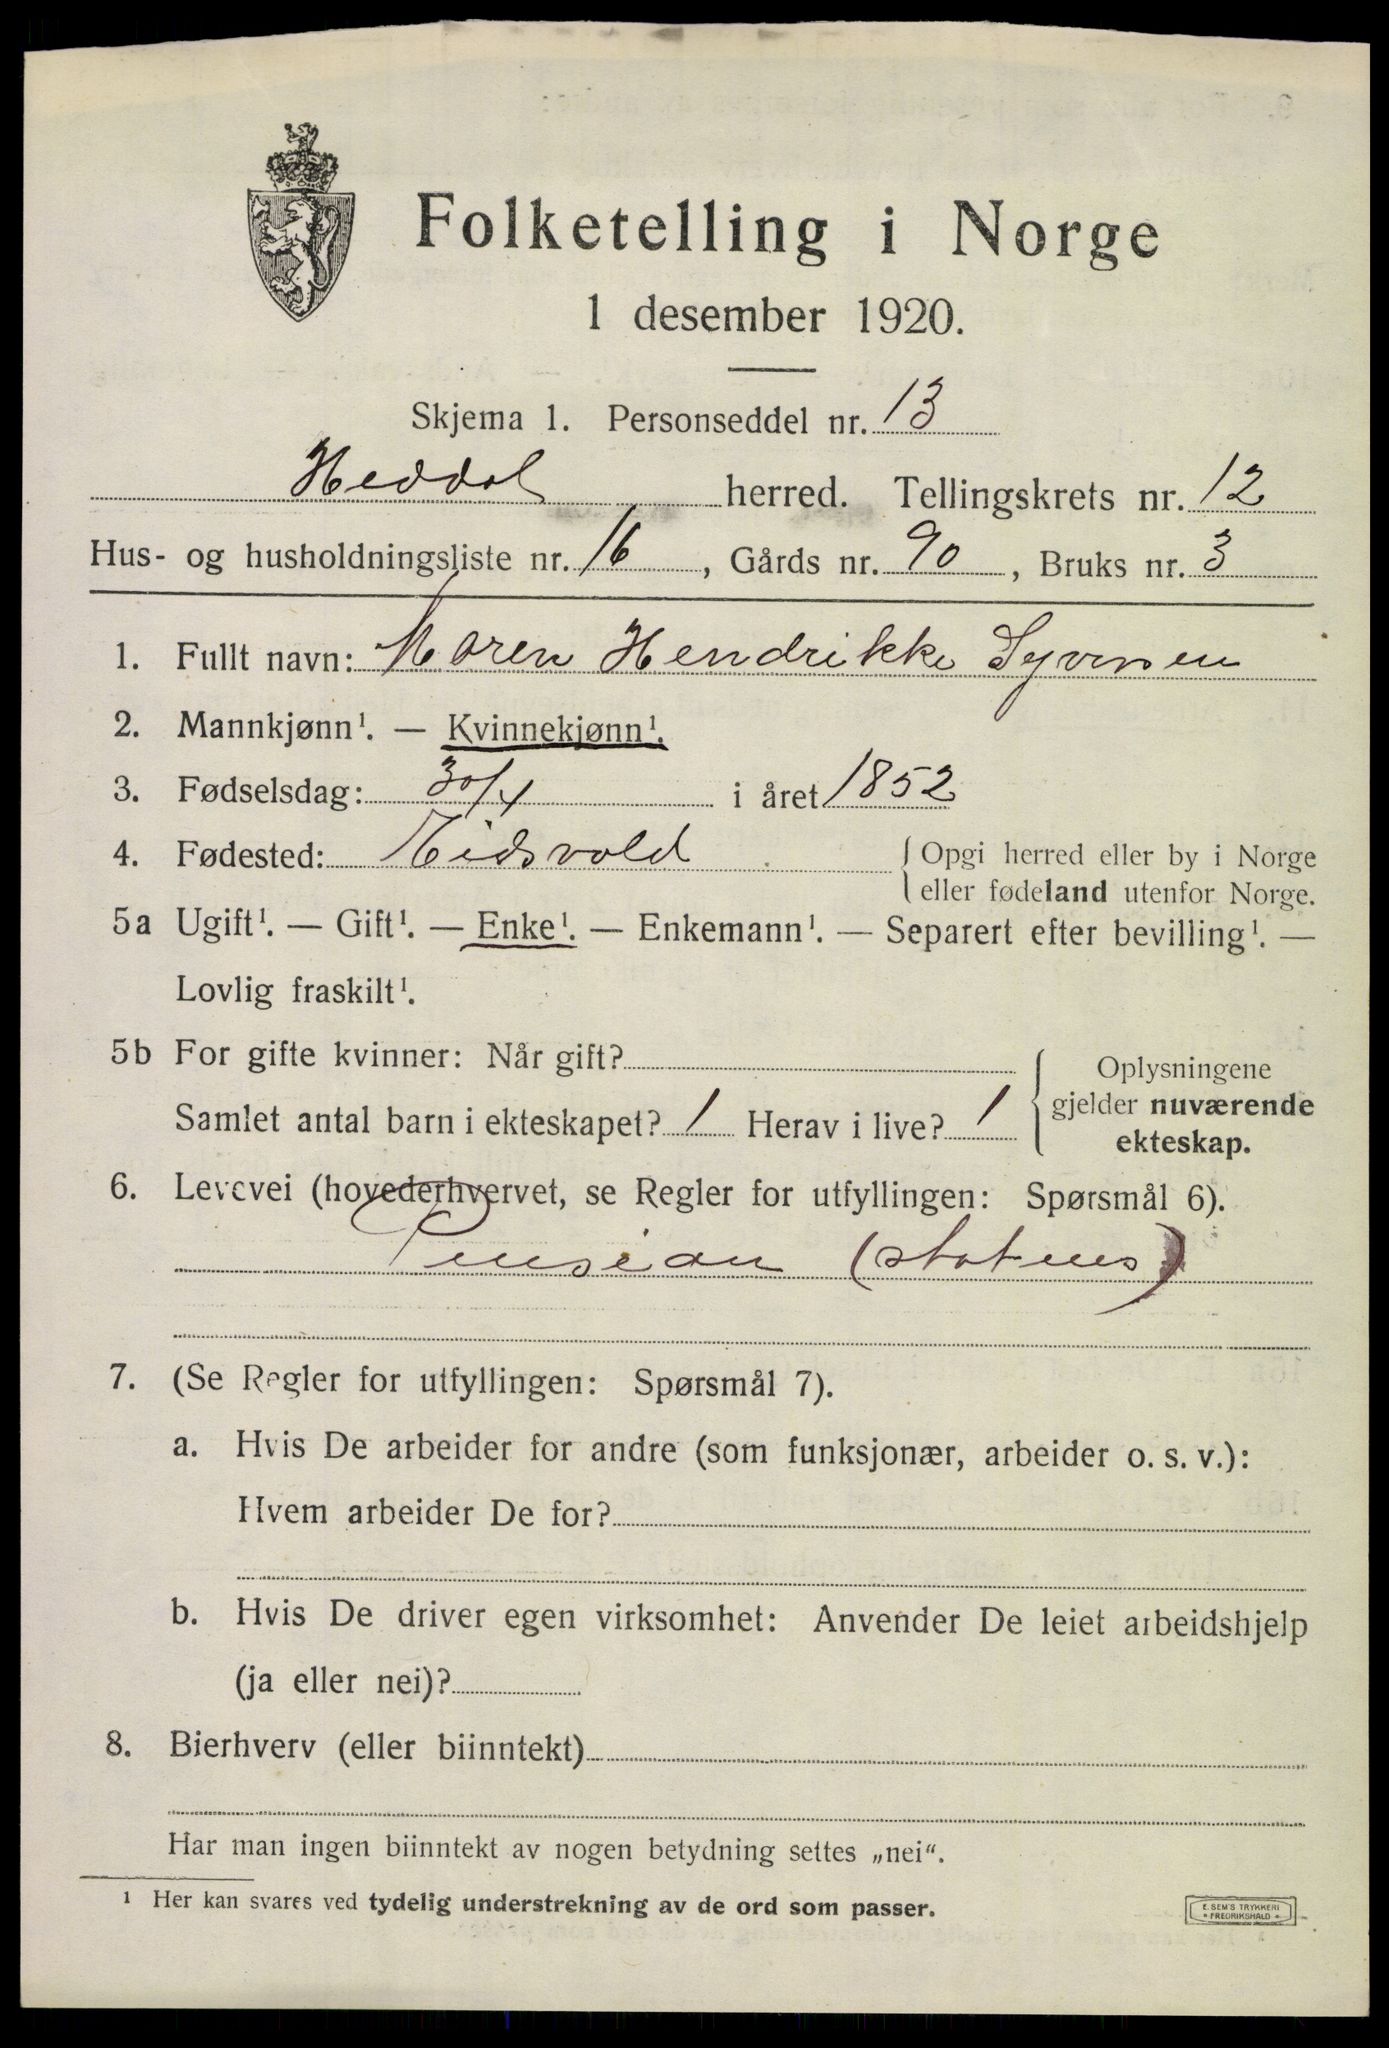 Folketelling i Norge
1 desember 1920.
Skjema 1. Personseddel nr. 13
Heddal herred. Tellingskrets nr. 12
Hus- og husholdningsliste nr. 16, Gårds nr. 90, Bruks nr. 3
1. Fullt navn: Maren Hendrikke
2. Mannkjønn¹. — Kvinnekjønn¹.
3. Fødselsdag: i året 1852
4. Fødested: Eidsvold {Opgi herred eller by i Norge
eller fødeland utenfor Norge.
5a Ugift¹. — Gift¹. — Enke¹. — Enkemann¹. — Separert efter bevilling¹. —
Lovlig fraskilt¹.
5b For gifte kvinner: Når gift?
Samlet antal barn i ekteskapet? 1 Herav i live? 1
{Oplysningene
gjelder nuværende
ekteskap.
6. Levevei (hovederhvervet, se Regler for utfyllingen: Spørsmål 6).
Pension (statens)
7. (Se Regler for utfyllingen: Spørsmål 7).
a. Hvis De arbeider for andre (som funksjonær, arbeider o. s. v.):
Hvem arbeider De for?
b. Hvis De driver egen virksomhet: Anvender De leiet arbeidshjelp
(ja eller nei)?
8. Bierhverv (eller biinntekt)
Har man ingen biinntekt av nogen betydning settes „nei“.
¹ Her kan svares ved tydelig understrekning av de ord som passer.
E. SEM'S TRYKKERI
* FREDRIKSHALD *